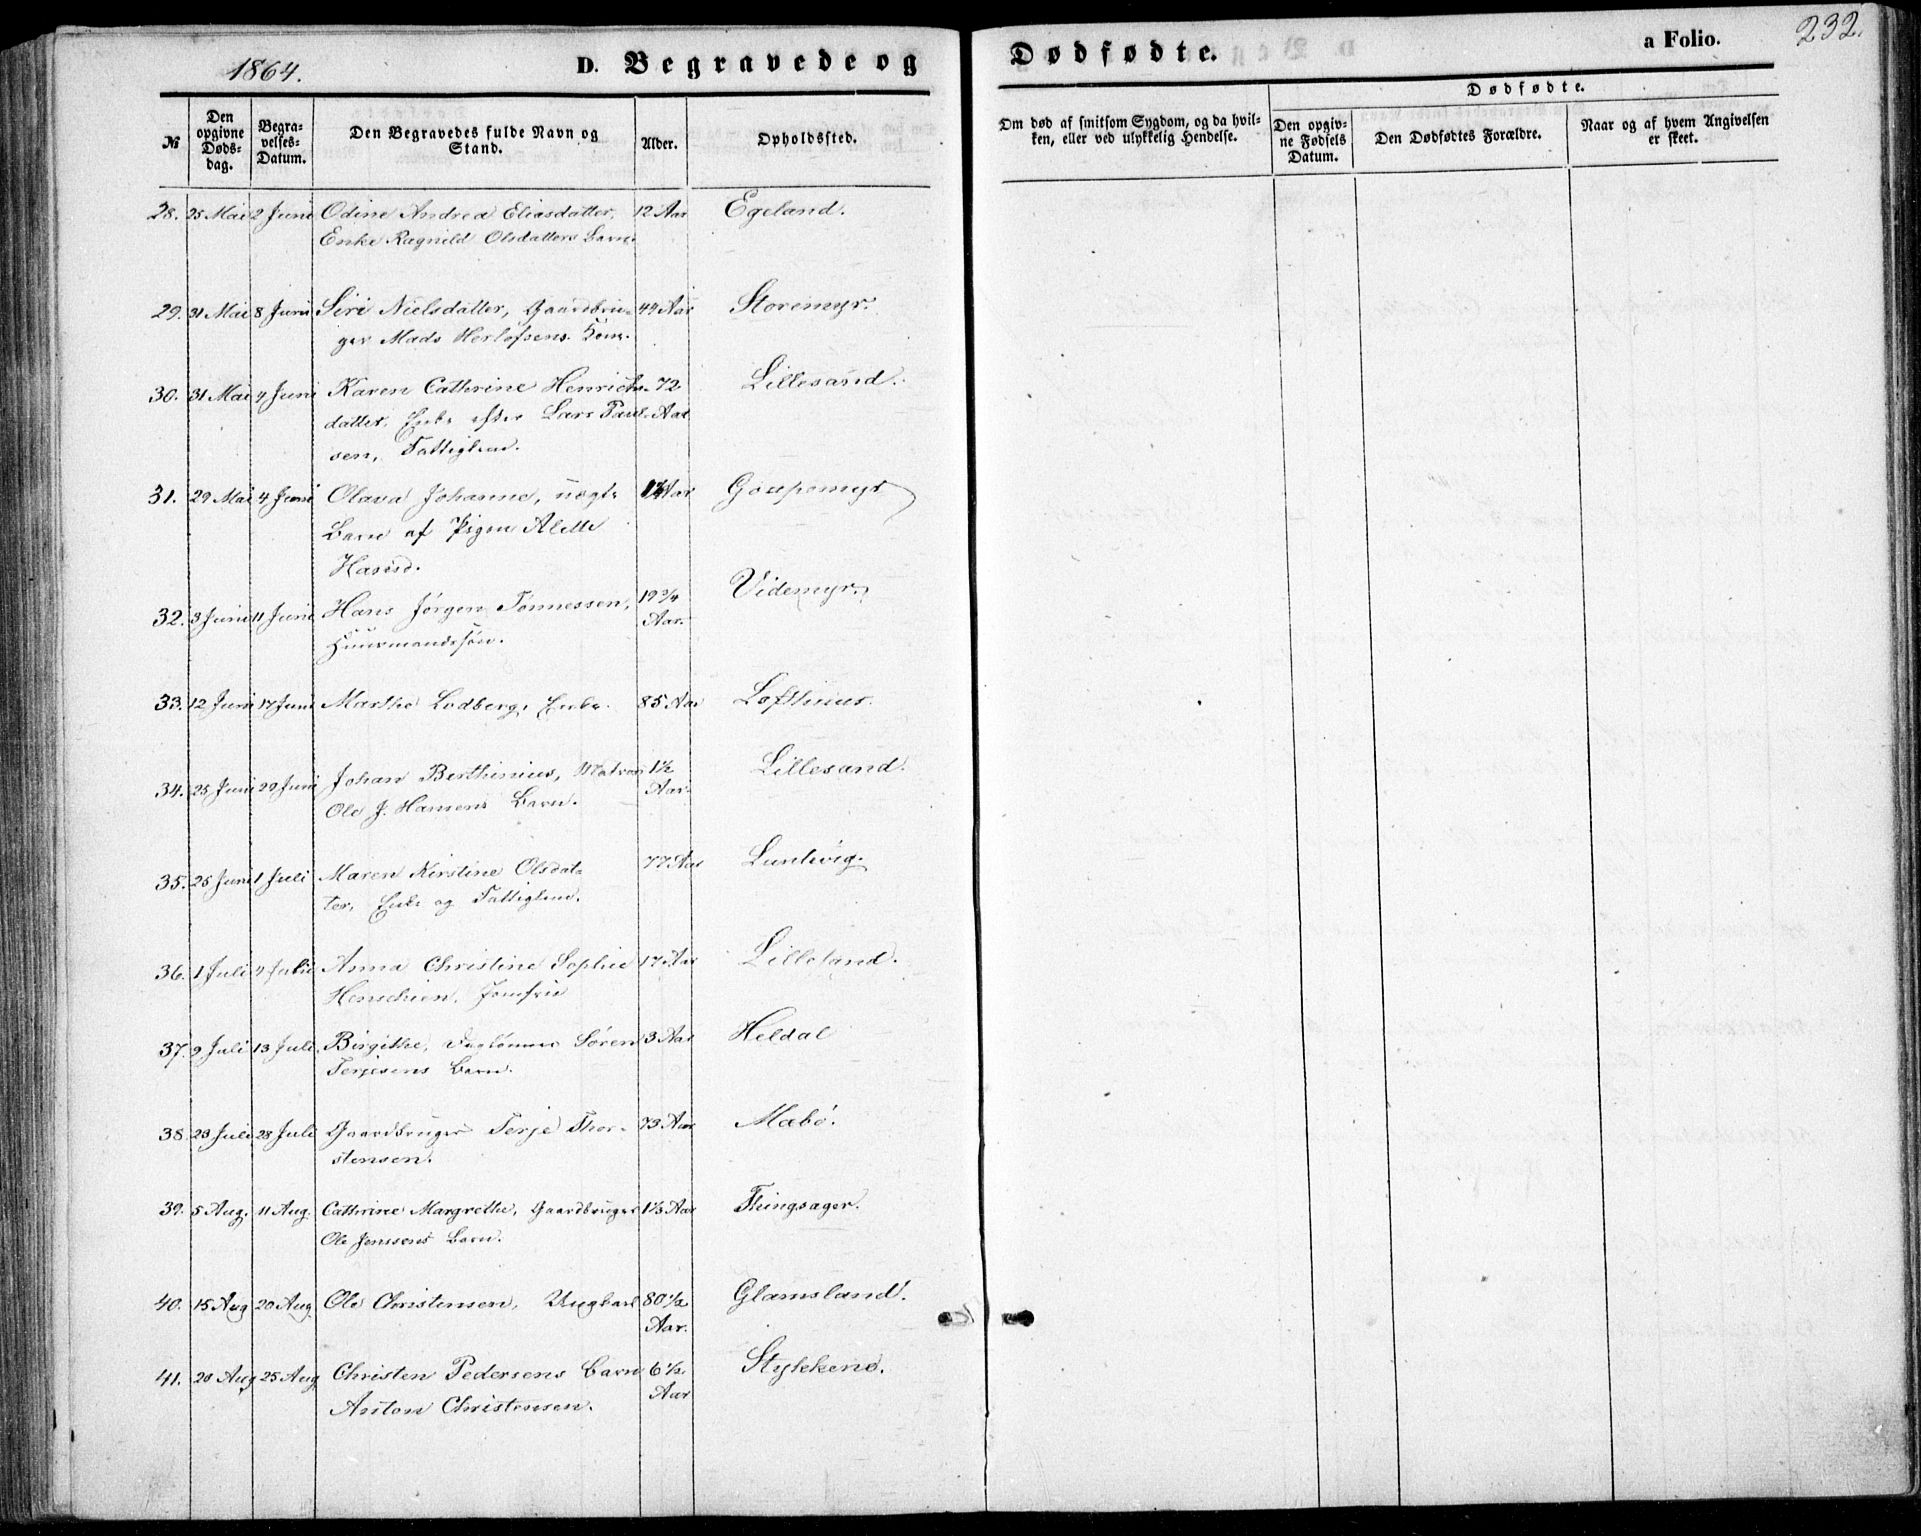 1864.
D. Begravede og
Dødfødte.
a Folio.
232.
№
Den opgivne Dødsdag.
Begravelses-Datum.
Den Begravedes fulde Navn og Stand.
Alder.
Opholdssted.
Om død af smitsom Sygdom, og da hvilken, eller ved ulykkelig Hendelse.
Dødfødte.
Den opgivne Fødsels Datum.
Den Dødfødtes Forældre.
Naar og af hvem Angivelsen er skeet.
28. 25 Mai 2 Juni Odine Andrea Eliasdatter, 12 Aar Egeland.
Enke Ragnild Olsdatters Barn.
29. 31 Mai 8 Juni Siri Nielsdatter, Gaardbru- 44 Aar Storemyr.
ger Mads Herlofsens Kone.
30. 31 Mai 4 Juni Karen Cathrine Henrichs- 72 Lillesand.
datter, Enke efter Lars Paul- Aar
sen, Fattiglem.
31. 29 Mai 4 Juni Olava Johanne, uægte Aar
Barn af Pigen Alette
Hansd.
32. 3 Juni 11 Juni Hans Jørgen Tønnessen, 19 3/4 Videmyr.
Huusmandssøn. Aar.
33. 12 Juni 17 Juni Marthe Lodberg, Enke. 85 Aar Lofthuus.
34. 25 Juni 29 Juni Johan Berthinius, Matros 1 1/2 Lillesand.
Ole J. Hansens Barn. Aar.
35. 25 Juni 1 Juli Maren Kirstine Olsdat- 77 Aar Luntevig.
ter, Enke og Fattiglem.
36. 1 Juli 4 Juli Anna Christine Sophie 17 Aar Lillesand.
Henschien, Jomfru
37. 9 Juli 13 Juli Birgithe, Daglønner Søren 3 Aar Heldal
Terjesens Barn.
38. 23 Juli 28 Juli Gaardbruger Terje Thor- 73 Aar Mæbø.
stensen.
39. 5 Aug. 11 Aug. Cathrine Margrethe, Gaardbruger 1 1/3 Aar Thingsager.
Ole Jenssens Barn.
40. 15 Aug 20 Aug. Ole Christensen, Ungkarl 80 1/2 Glamsland.
Aar.
41. 20 Aug 25 Aug Christen Pedersens Barn 6 1/2 Stykkenø.
Anton Christensen. Aar